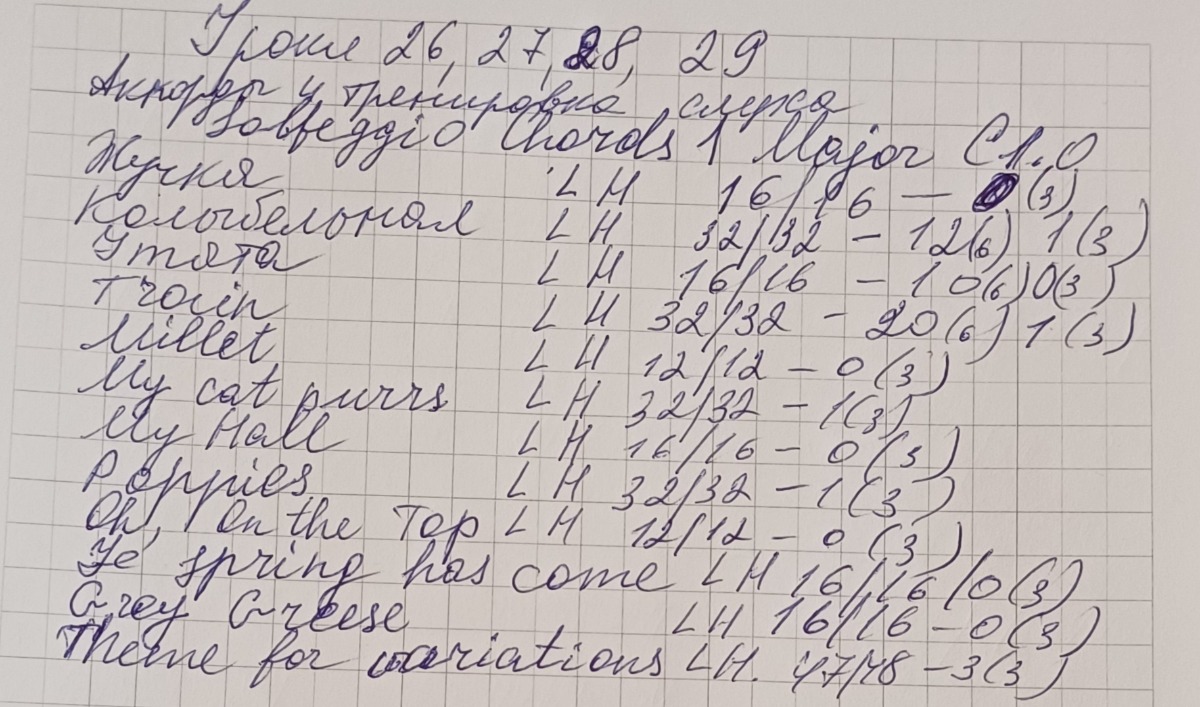 Уроки 26, 27, 28, 29
Аккорды и тренировка слуха
Solfeggio Chords 1 Major C1.0
Жучка LH 16/16 – 0 (3)
Колыбельная LH 32/32 – 12(6) 1(3)
Утята LH 16/16 – 10(6) 0(3)
Train LH 32/32 – 20(6) 1(3)
Millet LH 12/12 – 0(3)
My cat purrs LH 32/32 – 1(3)
My Hall LH 16/16 – 0(3)
Poppies LH 32/32 – 1(3)
Oh, on the Top LH 12/12 – 0(3)
Ye spring has come LH 16/16/0(3)
Grey Greese LH 16/16 – 0(3)
Theme for variations LH. 47/48 – 3(3)